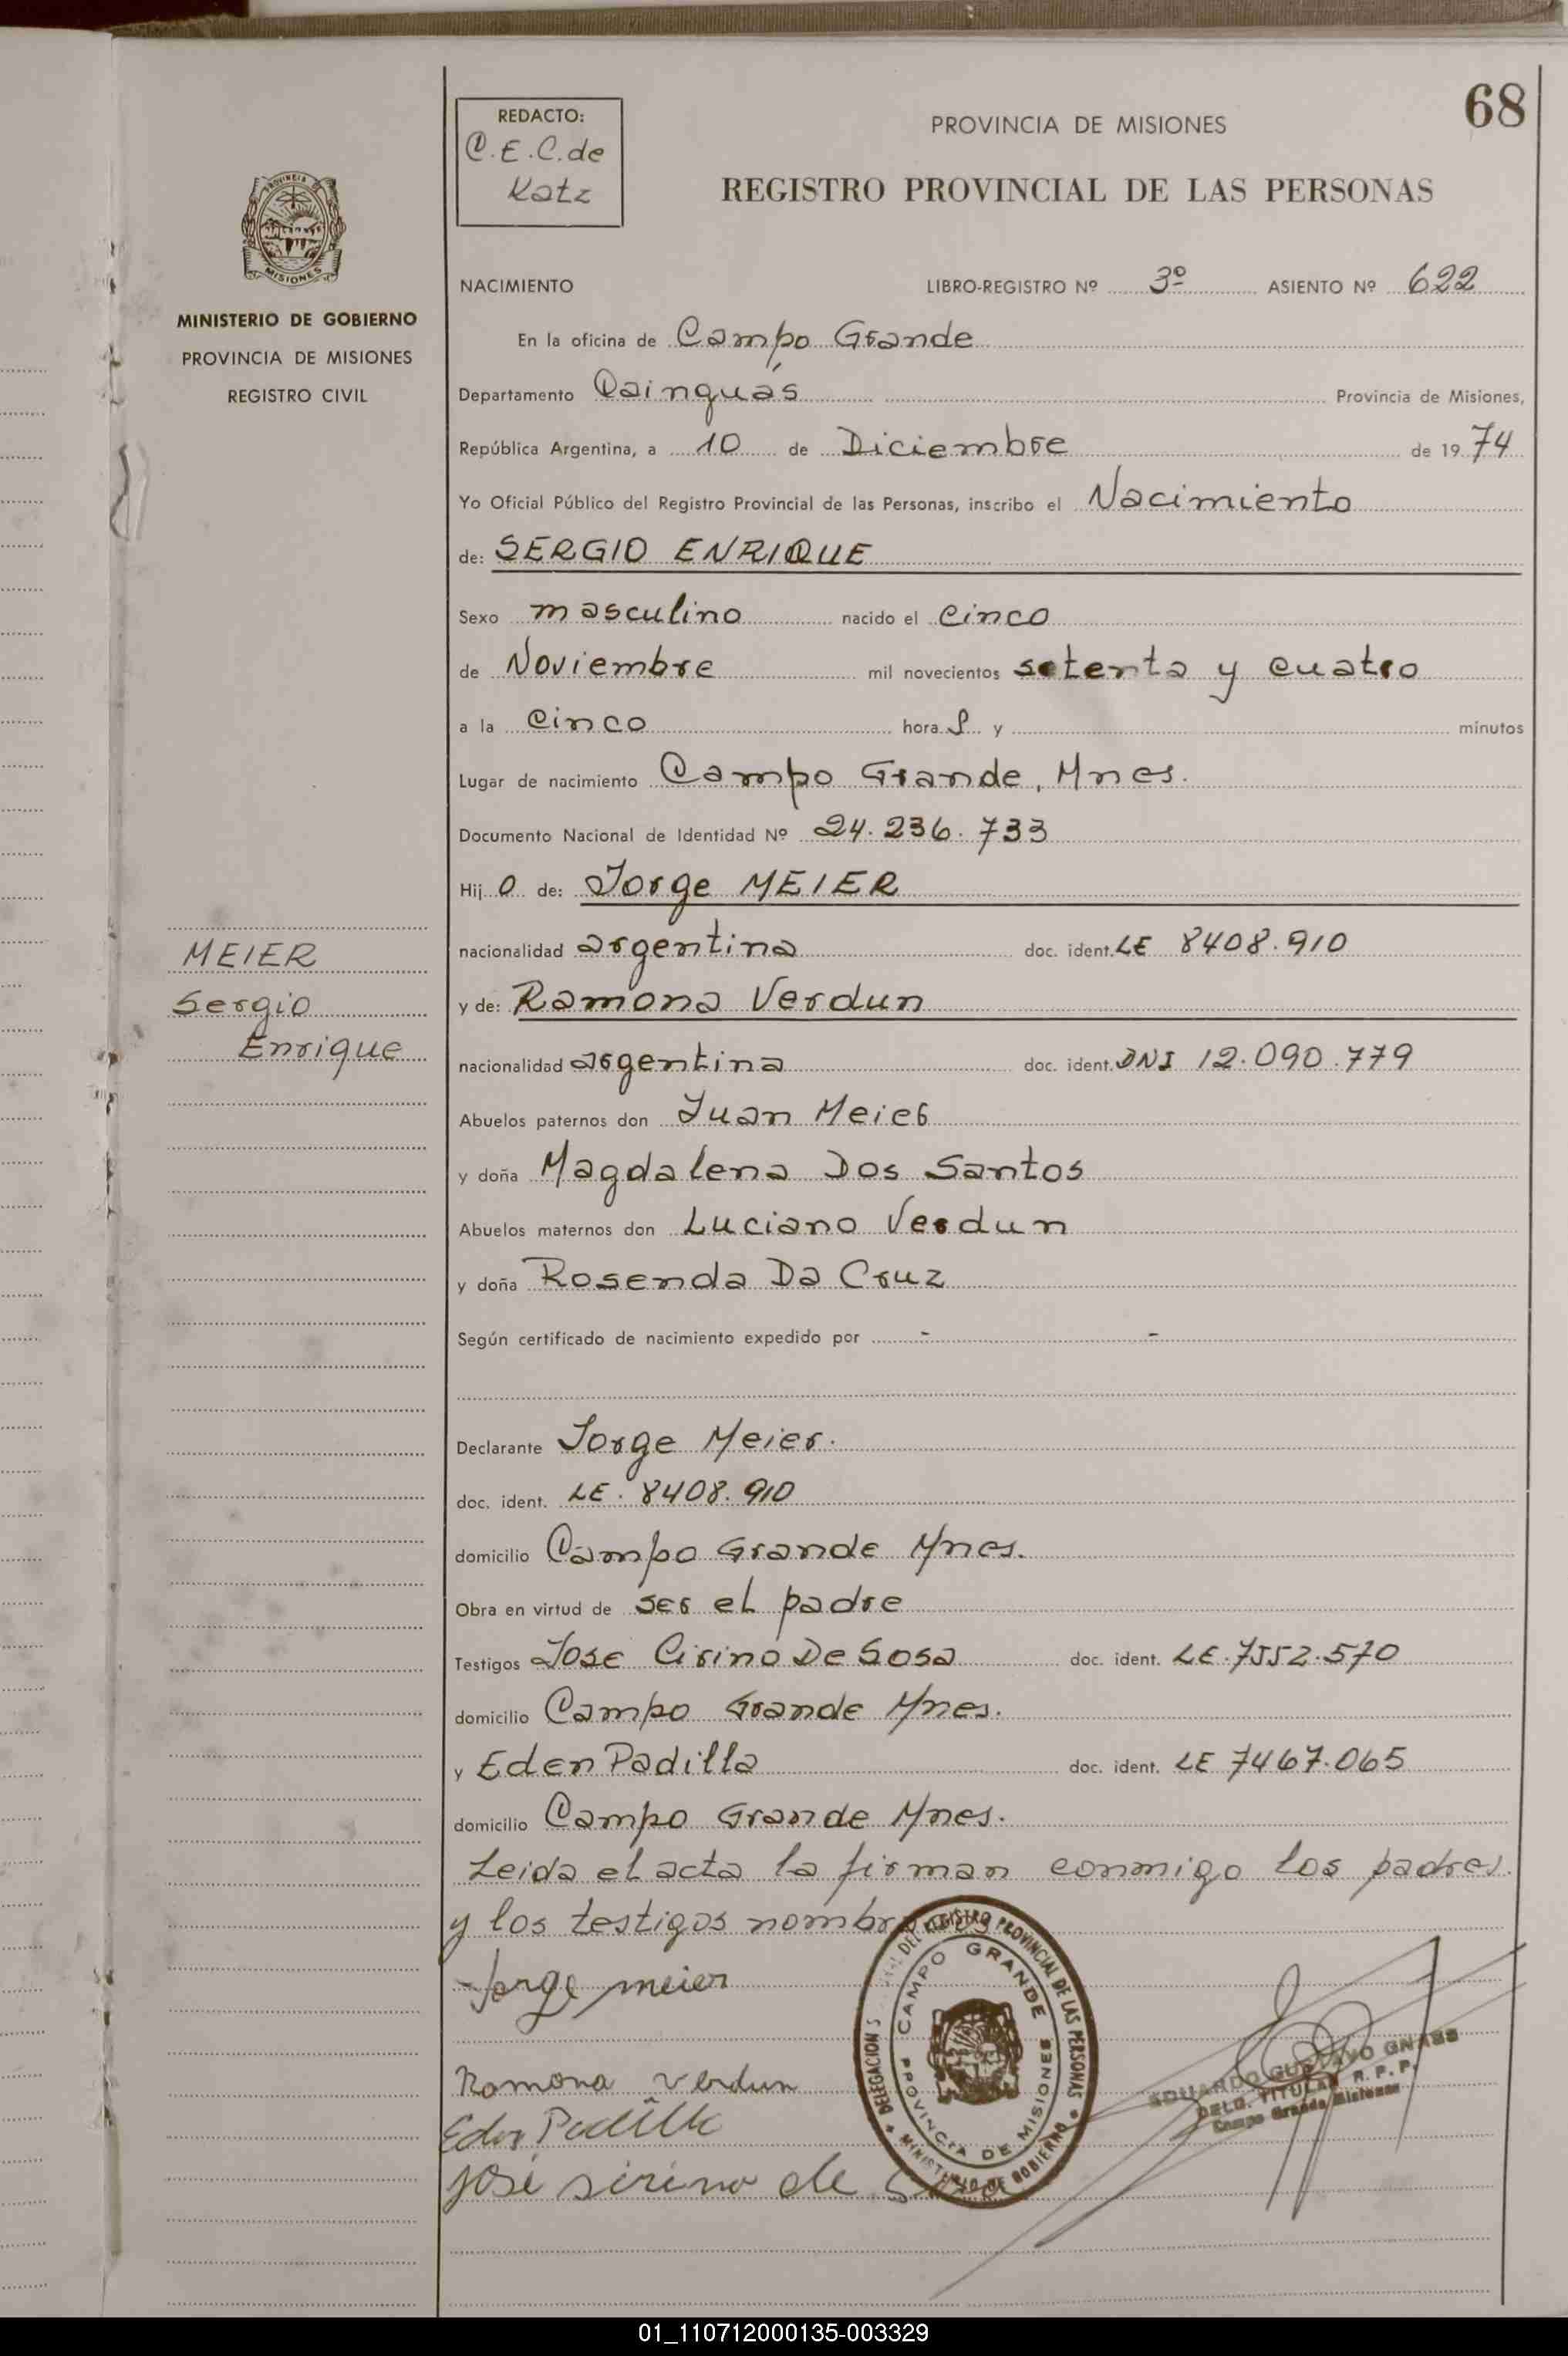 68
REDACTO:
C.E.C. de
Katz
PROVINCIA DE MISIONES
REGISTRO PROVINCIAL DE LAS PERSONAS
PROVINCIA DE
MISIONES
MINISTERIO DE GOBIERNO
PROVINCIA DE MISIONES
REGISTRO CIVIL
NACIMIENTO LIBRO-REGISTRO Nº 3º ASIENTO Nº 622
En la oficina de Campo Grande
Departamento Cainguás Provincia de Misiones,
República Argentina, a 10 de Diciembre de 1974
Yo Oficial Público del Registro Provincial de las Personas, inscribo el Nacimiento
de: SERGIO ENRIQUE
Sexo masculino nacido el cinco
de Noviembre mil novecientos setenta y cuatro
a la cinco hora s y minutos
Lugar de nacimiento Campo Grande, Mnes.
Documento Nacional de Identidad Nº 24.236.733
Hij o de: Jorge MEIER
nacionalidad argentina doc. ident. LE 8408.910
y de: Ramona Verdun
nacionalidad argentina doc. ident. DNI 12.090.779
MEIER
Sergio
Enrique
Abuelos paternos don Juan Meier
y doña Magdalena Dos Santos
Abuelos maternos don Luciano Verdun
y doña Rosenda Da Cruz
Según certificado de nacimiento expedido por - -
Declarante Jorge Meier.
doc. ident. LE. 8408.910
domicilio Campo Grande Mnes.
Obra en virtud de ser el padre
Testigos Jose Cirino De Sosa doc. ident. LE. 7552.570
domicilio Campo Grande Mnes.
y Eden Padilla doc. ident. LE 7467.065
domicilio Campo Grande Mnes.
Leida el acta la firman conmigo los padres
y los testigos nombrados
Jorge meier
Ramona verdun
Eden Padilla
José sirino de Sosa
DEL REGISTRO PROVINCIAL DE LAS PERSONAS
DELEGACION
MINISTERIO DE GOBIERNO
CAMPO GRANDE
PROVINCIA DE MISIONES
EDUARDO GUSTAVO GNASS
DELG. TITULAR R.P.P.
Campo Grande Misiones
01_110712000135-003329